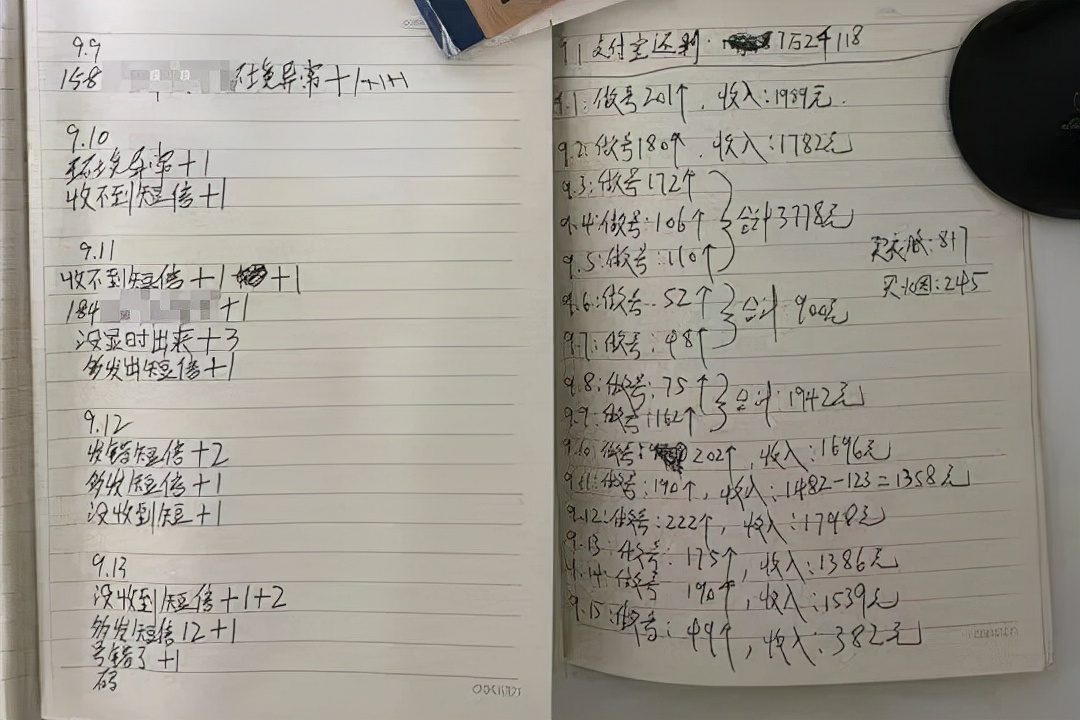 9.9
158 环境异常+1+1+1
9.10
环境异常+1
收不到短信+1
9.11
收不到短信+1 +1
184 +1
没显时出来+3
多发出短信+1
9.12
发错短信+2
多发短信+1
没收到短+1
9.13
没收到短信+1+2
多发短信12+1
号错了+1
码
9.1支付宝还剩: 7万2千118
9.1:做号201个, 收入:1989元.
9.2:做号180个, 收入:1782元
9.3:做号172个
9.4:做号:106个 合计3778元
9.5:做号:110个
买衣服:817
买火图:245
9.6:做号:52个 合计900元
9.7:做号:48个
9.8:做号:75个 合计:1942元
9.9:做号:162个
9.10:做号: 202个, 收入:1696元
9.11:做号:190个, 收入:1482-123=1358元
9.12:做号:222个, 收入:1748元
9.13:做号:175个, 收入:1386元
9.14:做号 190个, 收入:1539元
9.15:做号:49个, 收入:382元